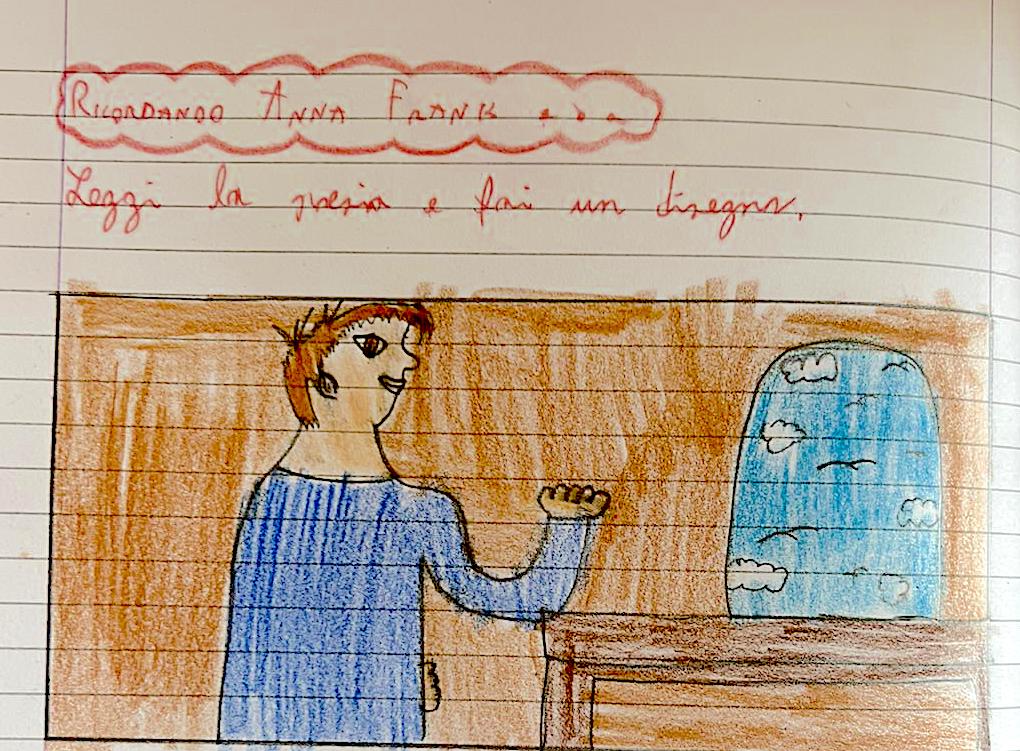 RICORDANDO ANNA FRANK ...
Leggi la poesia e fai un disegno.